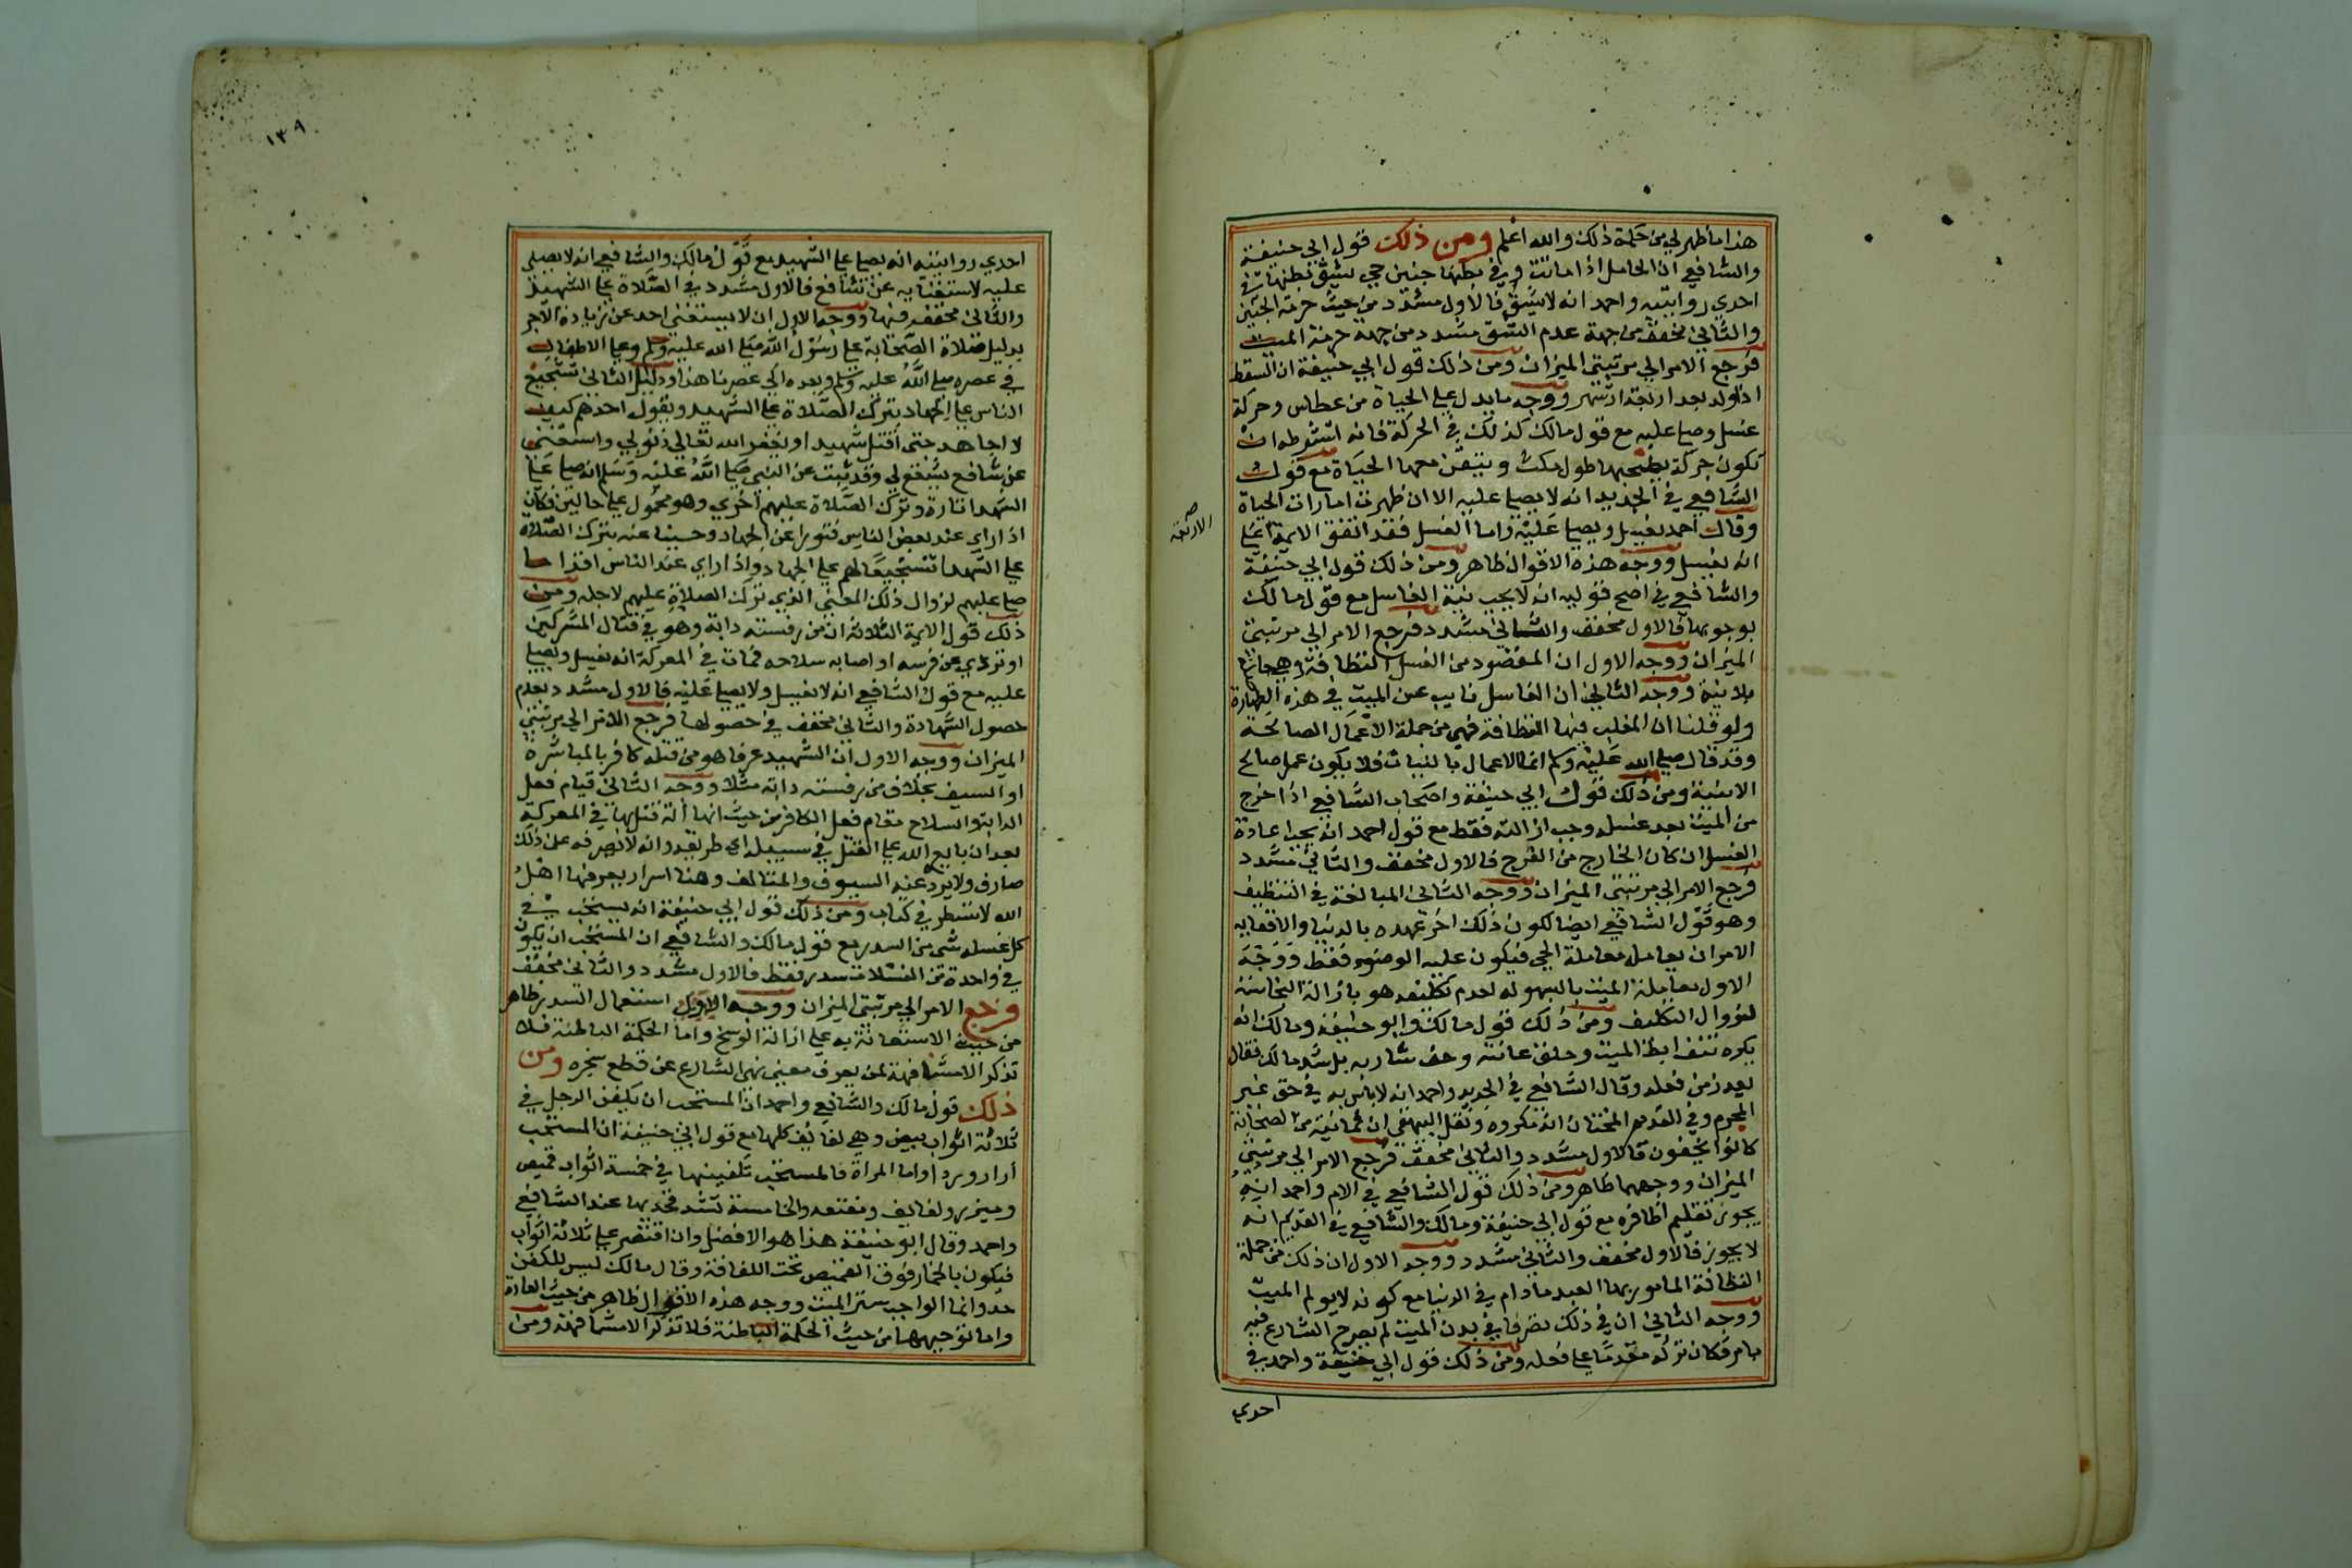 هذا ما ظهر لي من حكمة ذلك والله اعلم ومن ذلك قول ابي حنيفة
والشافعي ان الحامل اذا ماتت وفي بطنها جنين حي يشق بطنها مع
احدي روايتيه واحمد انه لا يشق فالاول مشدد من حيث حرمة الجنين
والثاني مخفف من جهة عدم الشق مشدد من جهة حرمة الميت
فرجع الامر الي مرتبتي الميزان ومن ذلك قول ابي حنيفة ان السقط
اذا ولد بعد اربعة اشهر ووجد ما يدل علي الحياة من عطاس وحركة
غسل وصلي عليه مع قول مالك كذلك في الحركة فانه اشترط ان
تكون حركة يصحبها طول مكث ويتيقن معها الحياة مع قول
الشافعي في الجديد انه لا يصلي عليه الا ان ظهرت امارات الحياة
وقال احمد يغسل ويصلي عليه واما الغسل فقد اتفق الايمة علي
الاربعة صح
انه يغسل ووجه هذه الاقوال ظاهر ومن ذلك قول ابي حنيفة
والشافعي في اصح قوليه انه لا يجب نية الغاسل مع قول مالك
بوجوبها فالاول مخفف والثاني مشدد فرجع الامر الي مرتبتي
الميزان ووجه الاول ان المقصود من الغسل النظافة وهي حاصلة
بلا نية ووجه الثاني ان الغاسل نايب عن الميت في هذه الطهارة
ولو قلنا ان المغلب فيها النظافة فهي من جملة الاعمال الصالحة
وقد قال صلي الله عليه وسلم انما الاعمال بالنيات فلا يكون عمل صالح
الا بنية ومن ذلك قول ابي حنيفة واصحاب الشافعي اذا خرج
من الميت بعد غسله وجب ازالته فقط مع قول احمد انه يجب اعادة
الغسل ان كان الخارج من الفرج فالاول مخفف والثاني مشدد
فرجع الامر الي مرتبتي الميزان ووجه الثاني المبالغة في التنظيف
وهو قول الشافعي ايضا لكون ذلك اخر عهده بالدنيا
الامر ان يعامل معاملة الحي فيكون عليه الوضوء فقط ووجه
الاول معاملة الميت بالسهولة لعدم تكليفه هو بازالة النجاسة
لزوال التكليف ومن ذلك قول مالك وابو حنيفة ومالك انه
يكره نتف ابط الميت وحلق عانته وحف شاربه بل شدد مالك فقال
يعزر من فعله وقال الشافعي في الجديد واحمد انه لا باس به في حق غير
المحرم وفي القديم المختار انه مكروه ونقل البيهقي ان ثمانية من الصحابة
كانوا يحفون فالاول مشدد والثاني مخفف فرجع الامر الي مرتبتي
الميزان ووجههما ظاهر ومن ذلك قول الشافعي في الام واحمد انه
يجوز تقليم اظافره مع قول ابي حنيفة ومالك والشافعي في القديم انه
لا يجوز فالاول مخفف والثاني مشدد ووجه الاول ان ذلك من جملة
النظافة المامور بها العبد ما دام في الدنيا مع كونه لا يولم الميت
ووجه الثاني ان في ذلك تصرفا في بدن الميت لم يصرح الشارع فيه
بامر فكان تركه مقدما علي فعله ومن ذلك قول ابي حنيفة واحمد في
احدي
١٣٩
احدي روايتيه انه يصلي علي الشهيد مع قول مالك والشافعي انه لا يصلي
عليه لاستغنايه عن شافع فالاول مشدد في الصلاة علي الشهيد
والثاني مخفف فيها ووجه الاول ان لا يستغني احد عن زيادة الاجر
بدليل صلاة الصحابة علي رسول الله صلي الله عليه وسلم وعلي الاطفال
في عصره صلي الله عليه وسلم وبعده الي عصرنا هذا ودليل الثاني تشجيع
الناس علي الجهاد بترك الصلاة علي الشهيد ويقول احدهم كيف
لا اجاهد حتي اقتل شهيدا ويغفر الله تعالي ذنوبي واستغني
عن شافع يشفع لي وقد ثبت عن النبي صلي الله عليه وسلم انه صلي علي
الشهدا تارة وترك الصلاة عليهم اخري وهو محمول علي حالين فكان
اذا راي عند بعض الناس فتورا عن الجهاد وجبنا عنه يترك الصلاة
علي الشهدا تشجيعا لهم علي الجهاد واذا راي عند الناس اقداما
صلي عليهم لزوال ذلك المعني الذي ترك الصلاة عليهم لاجله ومن
ذلك قول الايمة الثلاثة ان من رفسته دابة وهو في قتال المشركين
او تردي عن فرسه او اصابه سلاحه فمات في المعركة انه يغسل ويصلي
عليه مع قول الشافعي انه لا يغسل ولا يصلي عليه فالاول مشدد بعدم
حصول الشهادة والثاني مخفف في حصولها فرجع الامر الي مرتبتي
الميزان ووجه الاول ان الشهيد عرفا هو من قتله كافر بالمباشرة
او السيف بخلاف من رفسته دابة مثلا ووجه الثاني قيام فعل
الدابة والسلاح مقام فعل الكافر من حيث انها آلة قتل بها في المعركة
بعد ان بايع الله علي القتل في سبيله اي طريقه وانه لا يصرفه عن ذلك
صارف ولا يرده عنه السيوف والمتالف وهنا اسرار يعرفها اهل
الله لا تسطر في كتاب ومن ذلك قول ابي حنيفة انه يستحب في
كل غسله شي من السدر مع قول مالك والشافعي ان المستحب ان يكون
في واحدة من الغسلات سدر فقط فالاول مشدد والثاني مخفف
فرجع الامر الي مرتبتي الميزان ووجه الاول استعمال السدر ظاهر
من حيث الاستعانة به علي ازالة الوسخ واما الحكمة الباطنة فلا
تذكر الا مشافهة لمن يعرف معني نهي الشارع عن قطع شجره ومن
ذلك قول مالك والشافعي واحمد ان المستحب ان يكفن الرجل في
ثلاثة اثواب بيض وهي لفايف كلها مع قول ابي حنيفة ان المستحب
ازار وردا واما المراة فالمستحب تكفينها في خمسة اثواب قميص
وميزر ولفايف ومقنعه والخامسة تشد فخذيها عند الشافعي
واحمد وقال ابو حنيفة هذا هو الافضل وان اقتصر علي ثلاثة اثواب
فيكون بالخمار فوق القميص تحت اللفافة وقال مالك ليس للكفن
حد وانما الواجب ستر الميت ووجه هذه الاقوال ظاهر من حيث العادة
واما توجيهها من حيث الحكمة الباطنة فلا تذكر الا مشافهة ومن